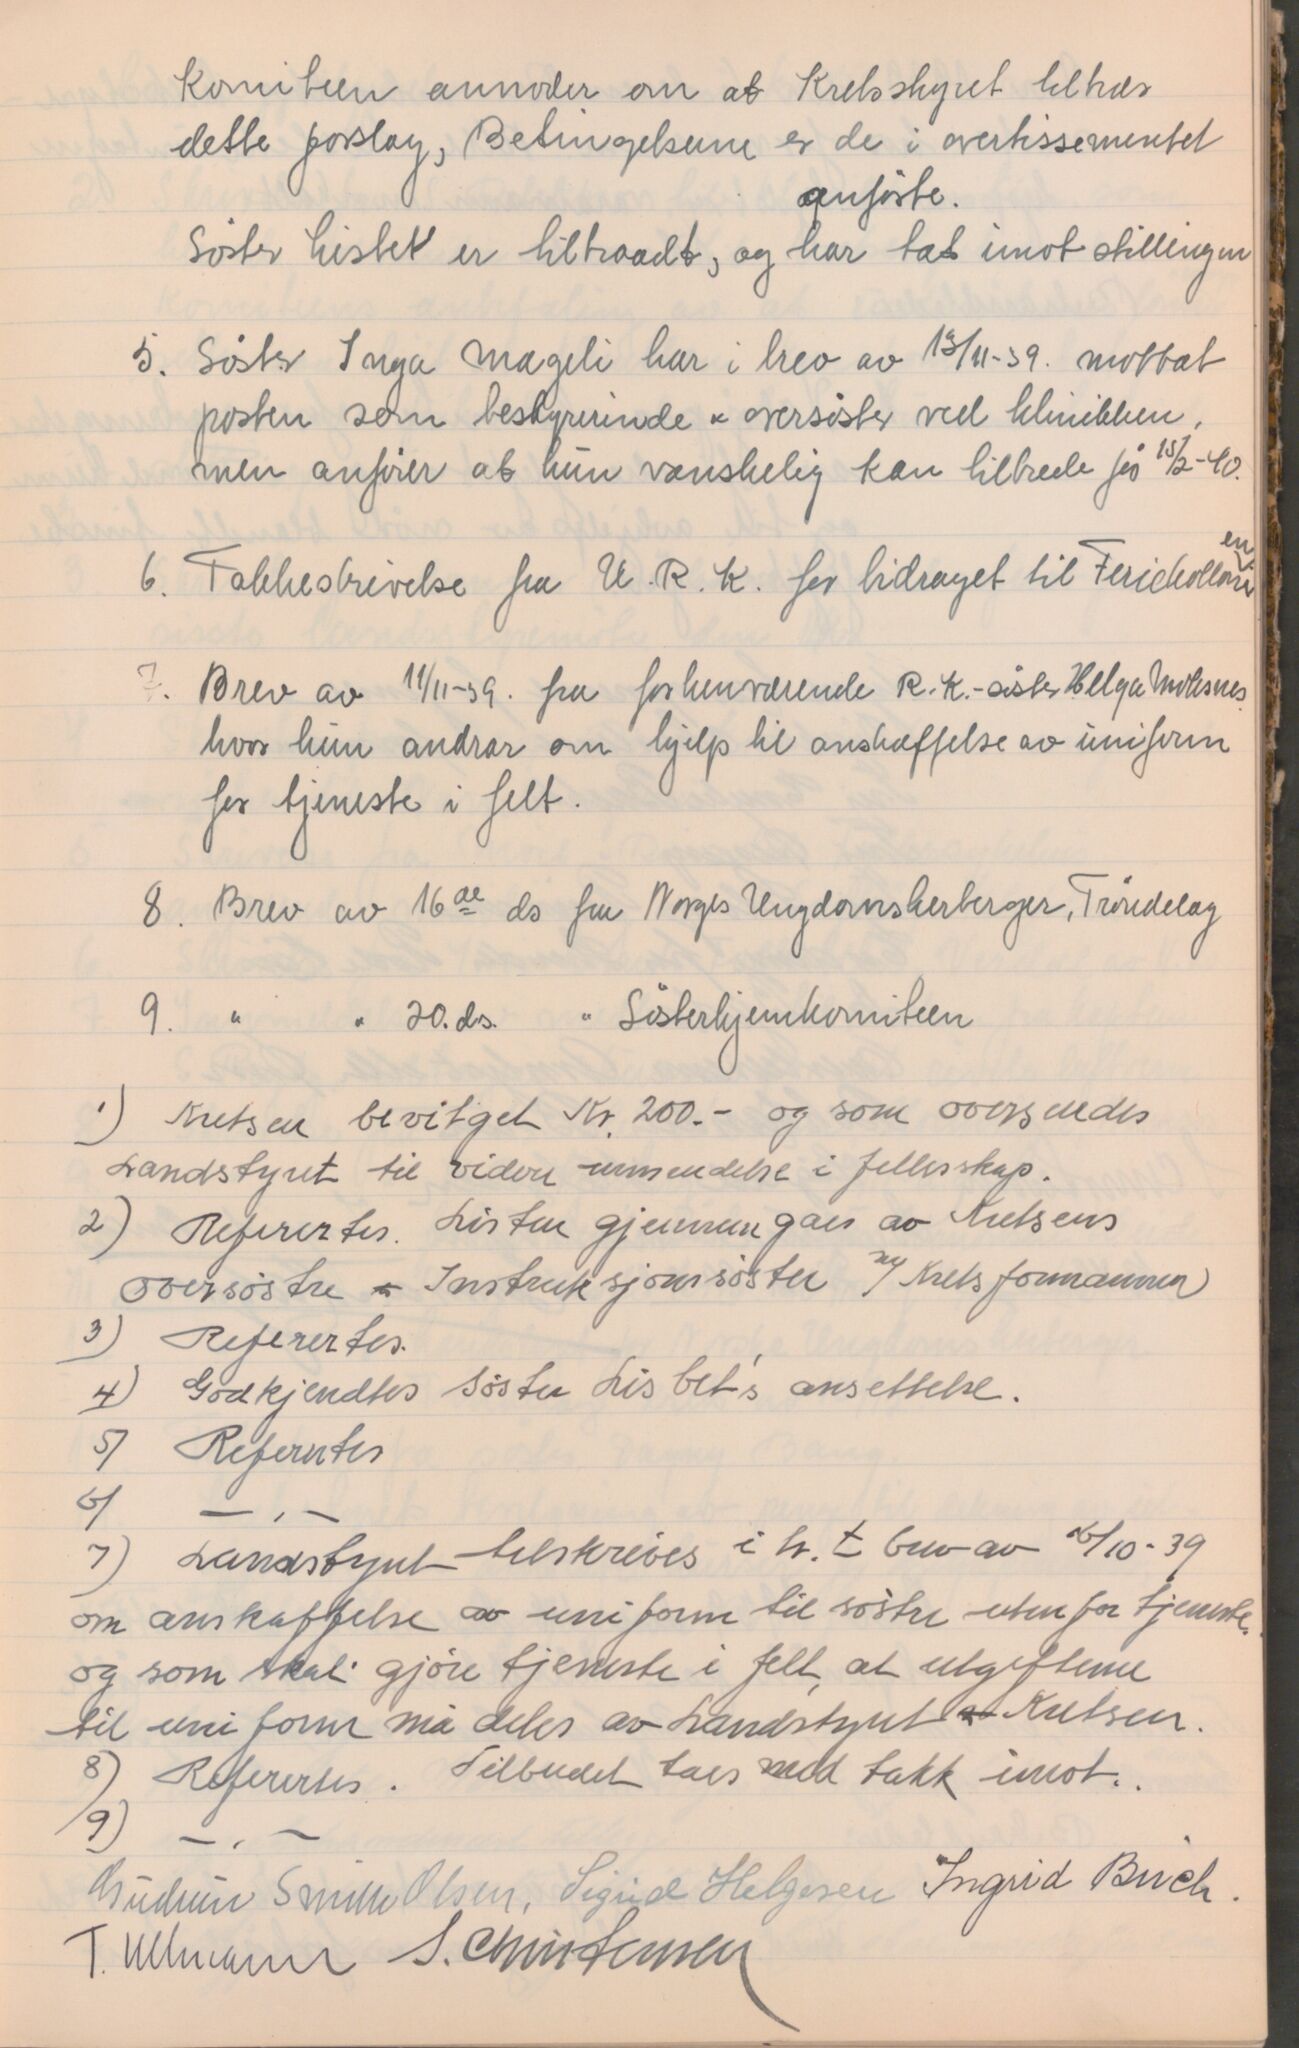 Komiteen anmoder om at Kretsstyret tiltrær
dette forslag, Betingelsene er de i avertissementet
anførte.
Søster Lisbet er tiltraadt, og har tat imot stillingen
5. Søster Inga Mageli har i brev av 13/11-39. mottat
posten som bestyrerinde & oversøster ved klinikken,
men anfører at hun vanskelig kan tiltrede før 15/2-40.
6. Takkeskrivelse fra U.R.K. for bidraget til Feriekolonien
7. Brev av 11/11-39. fra forhenværende R.K.-søster Helga Moksnes
hvor hun andrar om hjelp til anskaffelse av uniform
for tjeneste i felt.
8. Brev av 16de ds fra Norges Ungdomsherberger, Trøndelag
9. " " 20. ds. " Søsterhjemkomiteen
1) Kretsen bevilget Kr. 200.- og som oversendes
Landstyret til videre innsendelse i fellesskap.
2) Referertes. Listen gjennemgaaes av Kretsens
oversøstre & Instruksjonssøster m/ Kretsformannen
3) Referertes.
4) Godkjendtes Søster Lisbet's ansettelse.
5) Referertes
6) — , —
7) Landstyret tilskrives i h. t brev av 26/10-39
om anskaffelse av uniform til søstre utenfor tjeneste.
og som skal gjøre tjeneste i felt, at utgiftene
til uniform må deles av Landstyret & Kretsen.
8) Referertes. Tilbudet taes med takk imot.
9) — , —
Gudrun Smith Olsen, Sigrid Helgesen Ingrid Birch.
T. Ullmann S. Christensen